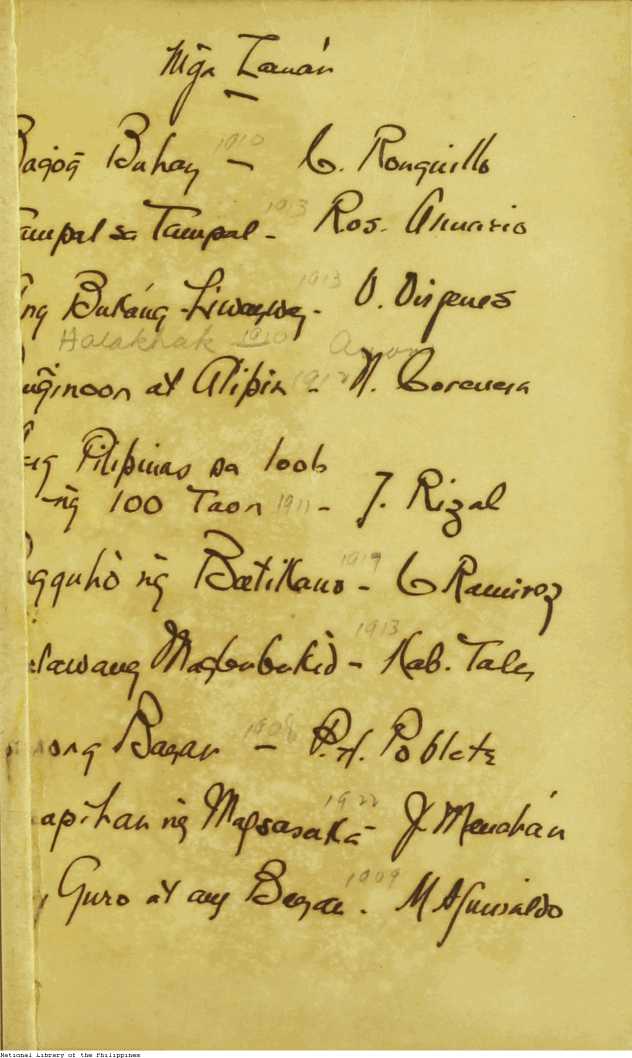 Mg̃a Lamán
Bagog̃ Buhay 1910 – C. Ronquillo
ampal sa Tampal – 1913 Ros. Almario
ng Bukáng-Liwayway – 1913 D. Digenes
Halakhak 1910
ug̃inoon at Alipin – N.
ng Pilipinas sa loob
ng̃ 100 Taon 1911 – J. Rizal
gguhò ng̃ Batikano – 1919 C Ramirez
alawang Magbubukid – 1913 Kab. Tales
ong Bayan – 1908 P. H. Poblete
apihan ng̃ Magsasaká – 1922 J.
Guro at ang Bayan. 1909 M Aguinaldo
National Library of the Philippines